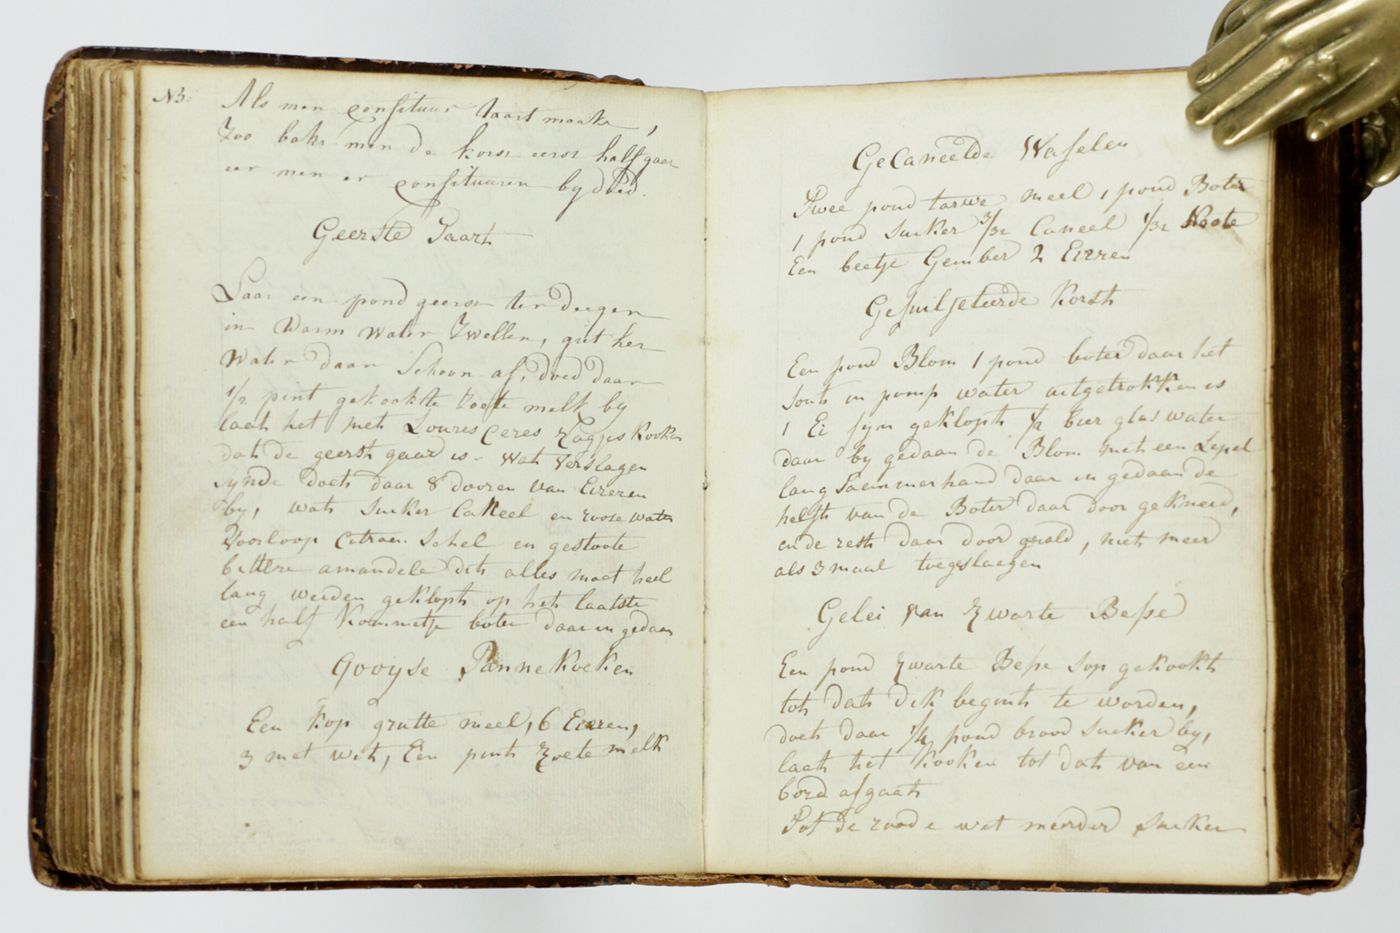 NB: Als men Confituur Taart maakt,
Zoo bakt men de korst eerst half gaar
eer men er Confituuren by doed.
Geerste Taart
Laat een pond geerst ter deegen
in Warm Water Zwellen, giet het
Water daar Schoon af, doed daar
1/2 pint gekookte Zoete melk by
laat het met Koken
dat de geerst gaar is. Wat Verslagen
zynde doets daar 8 dooren van Eieren
by, wat Suiker Caneel en roose water
Voorloop Citroen Schel en gestoote
bittere amandele dit alles moet heel
lang werden geklopt op het laatste
een half Kommetje boter daar in gedaan
Gooyse Pannekoeken
Een Kop grutte meel, 6 Eieren,
3 met wit, Een pint Zoete melk
Gecaneelde Wafelen
Twee pond tarwe meel 1 pond Boter
1 pond Suiker 3/32 Caneel 1/32 Noote
Een beetje Gember 2 Eieren
Korst
Een pond Blom 1 pond boter daar het
sout in pomp water uitgetrokken is
1 Ei fyn geklopt 1/2 bier glas water
daar by gedaan de Blom met een Lepel
lang Saemmerhand daar in gedaan de
helft van de Boter daar door gekneed,
en de rest daar door gerold, niet meer
als 3 maal toegeslaegen
Gelei van Zwarte Besse
Een pond Zwarte Besse Sop gekookt
tot dat dik begint te worden,
doet daar 1/4 pond brood Suiker by,
laat het Kooken tot dat van een
bord afgaat
Tot de roode wat meerder Suiker